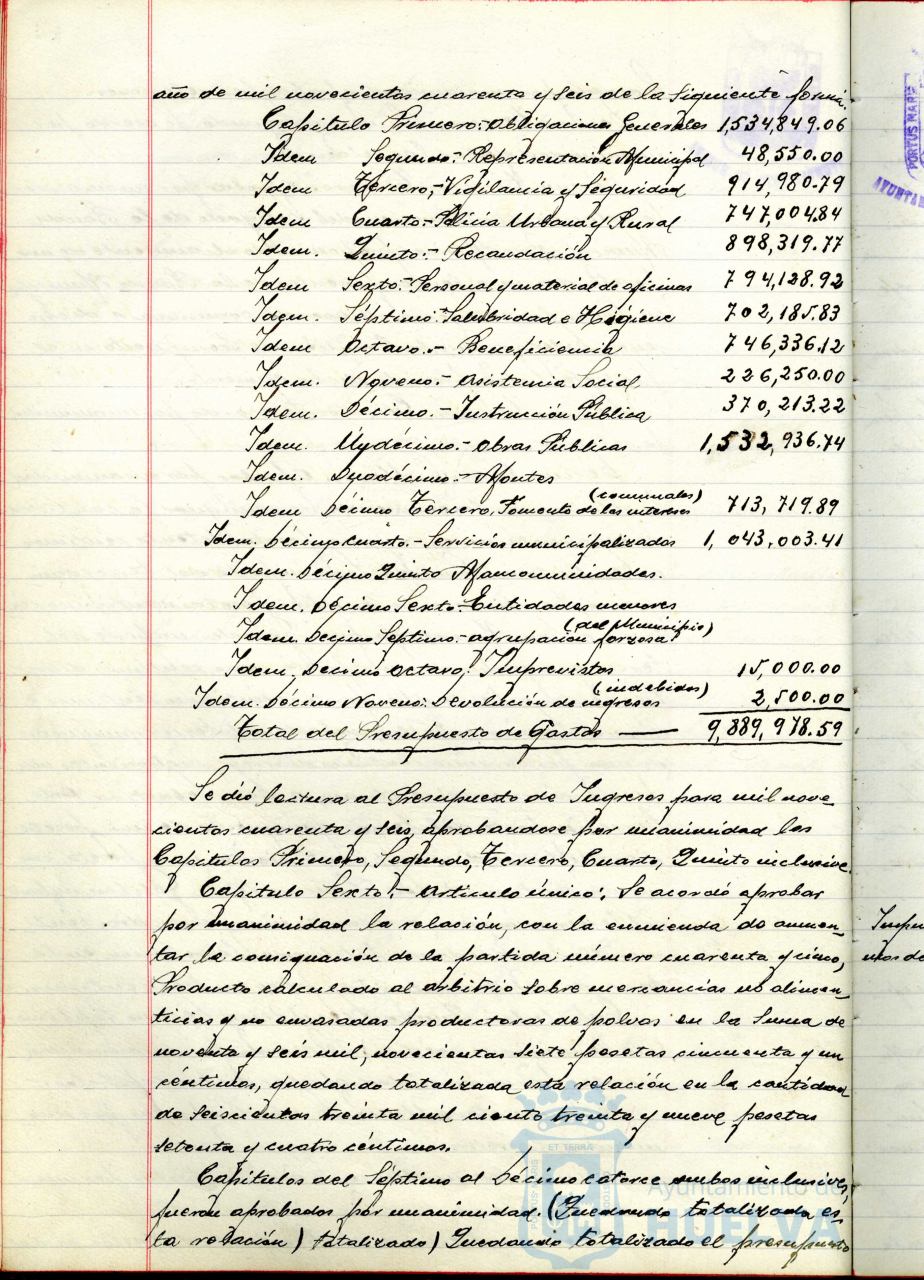 año de mil novecientos cuarenta y seis de la siguiente forma.
Capitulo Primero:-Obligaciones Generales 1,534,849.06
Idem Segundo:-Representación Municipal 48,550.00
Idem Tercero,-Vigilancia y Seguridad 914,980.79
Idem Cuarto:-Policia Urbana y Rural 747,004.84
Idem. Quinto:- Recaudación 898,319.77
Idem Sexto:-Personal y material de oficinas 794,128.92
Idem. Séptimo:-Salubridad e Higiene 702,185.83
Idem Octavo.- Beneficiencia 746,336.12
Idem. Noveno:- Asistencia Social 226,250.00
Idem. Décimo.- Instrucción Pública 370,213.22
Idem. Undécimo.- Obras Públicas 1,532,936.74
Idem. Duodécimo.- Montes
Idem Décimo Tercero, Fomento de los intereses (comunales) 713,719.89
Idem. Décimo cuarto.-Servicios municipalizados 1,043,003.41
Idem. Décimo Quinto Mancomunidades.
Idem. Décimo Sexto:-Entidades menores
Idem. Décimo Septimo:-agrupación forzosa (del Municipio)
Idem, Décimo Octavo: Imprevistos 15,000.00
Idem. Décimo Noveno: Devolución de ingresos (indebidos) 2,500.00
Total del Presupuesto de Gastos 9,889,978.59
Se dió lectura al Presupuesto de Ingresos para mil nove-
cientos cuarenta y seis, aprobandose por unanimidad los
Capitulos Primero, Segundo, Tercero, Cuarto, Quinto inclusive.
Capitulo Sexto:- Articulo único: Se acordó aprobar
por unanimidad la relación, con la enmienda de aumen-
tar la consignación de la partida número cuarenta y cinco,
Producto calculado al arbitrio sobre mercancias no alimen-
ticias y no envasadas productoras de polvos en la suma de
noventa y seis mil, novecientas siete pesetas cincuenta y un
céntimos, quedando totalizada esta relación en la cantidad
de seiscientas treinta mil ciento treinta y nueve pesetas
setenta y cuatro céntimos.
Capitulos del Séptimo al Décimo catorce ambos inclusives,
fueron aprobados por unanimidad. (Quedando totalizada es-
ta relación) totalizado) Quedando totalizado el presupuesto
PORTUS MARIS
ET TERRA
Ayuntamiento de
HUELVA